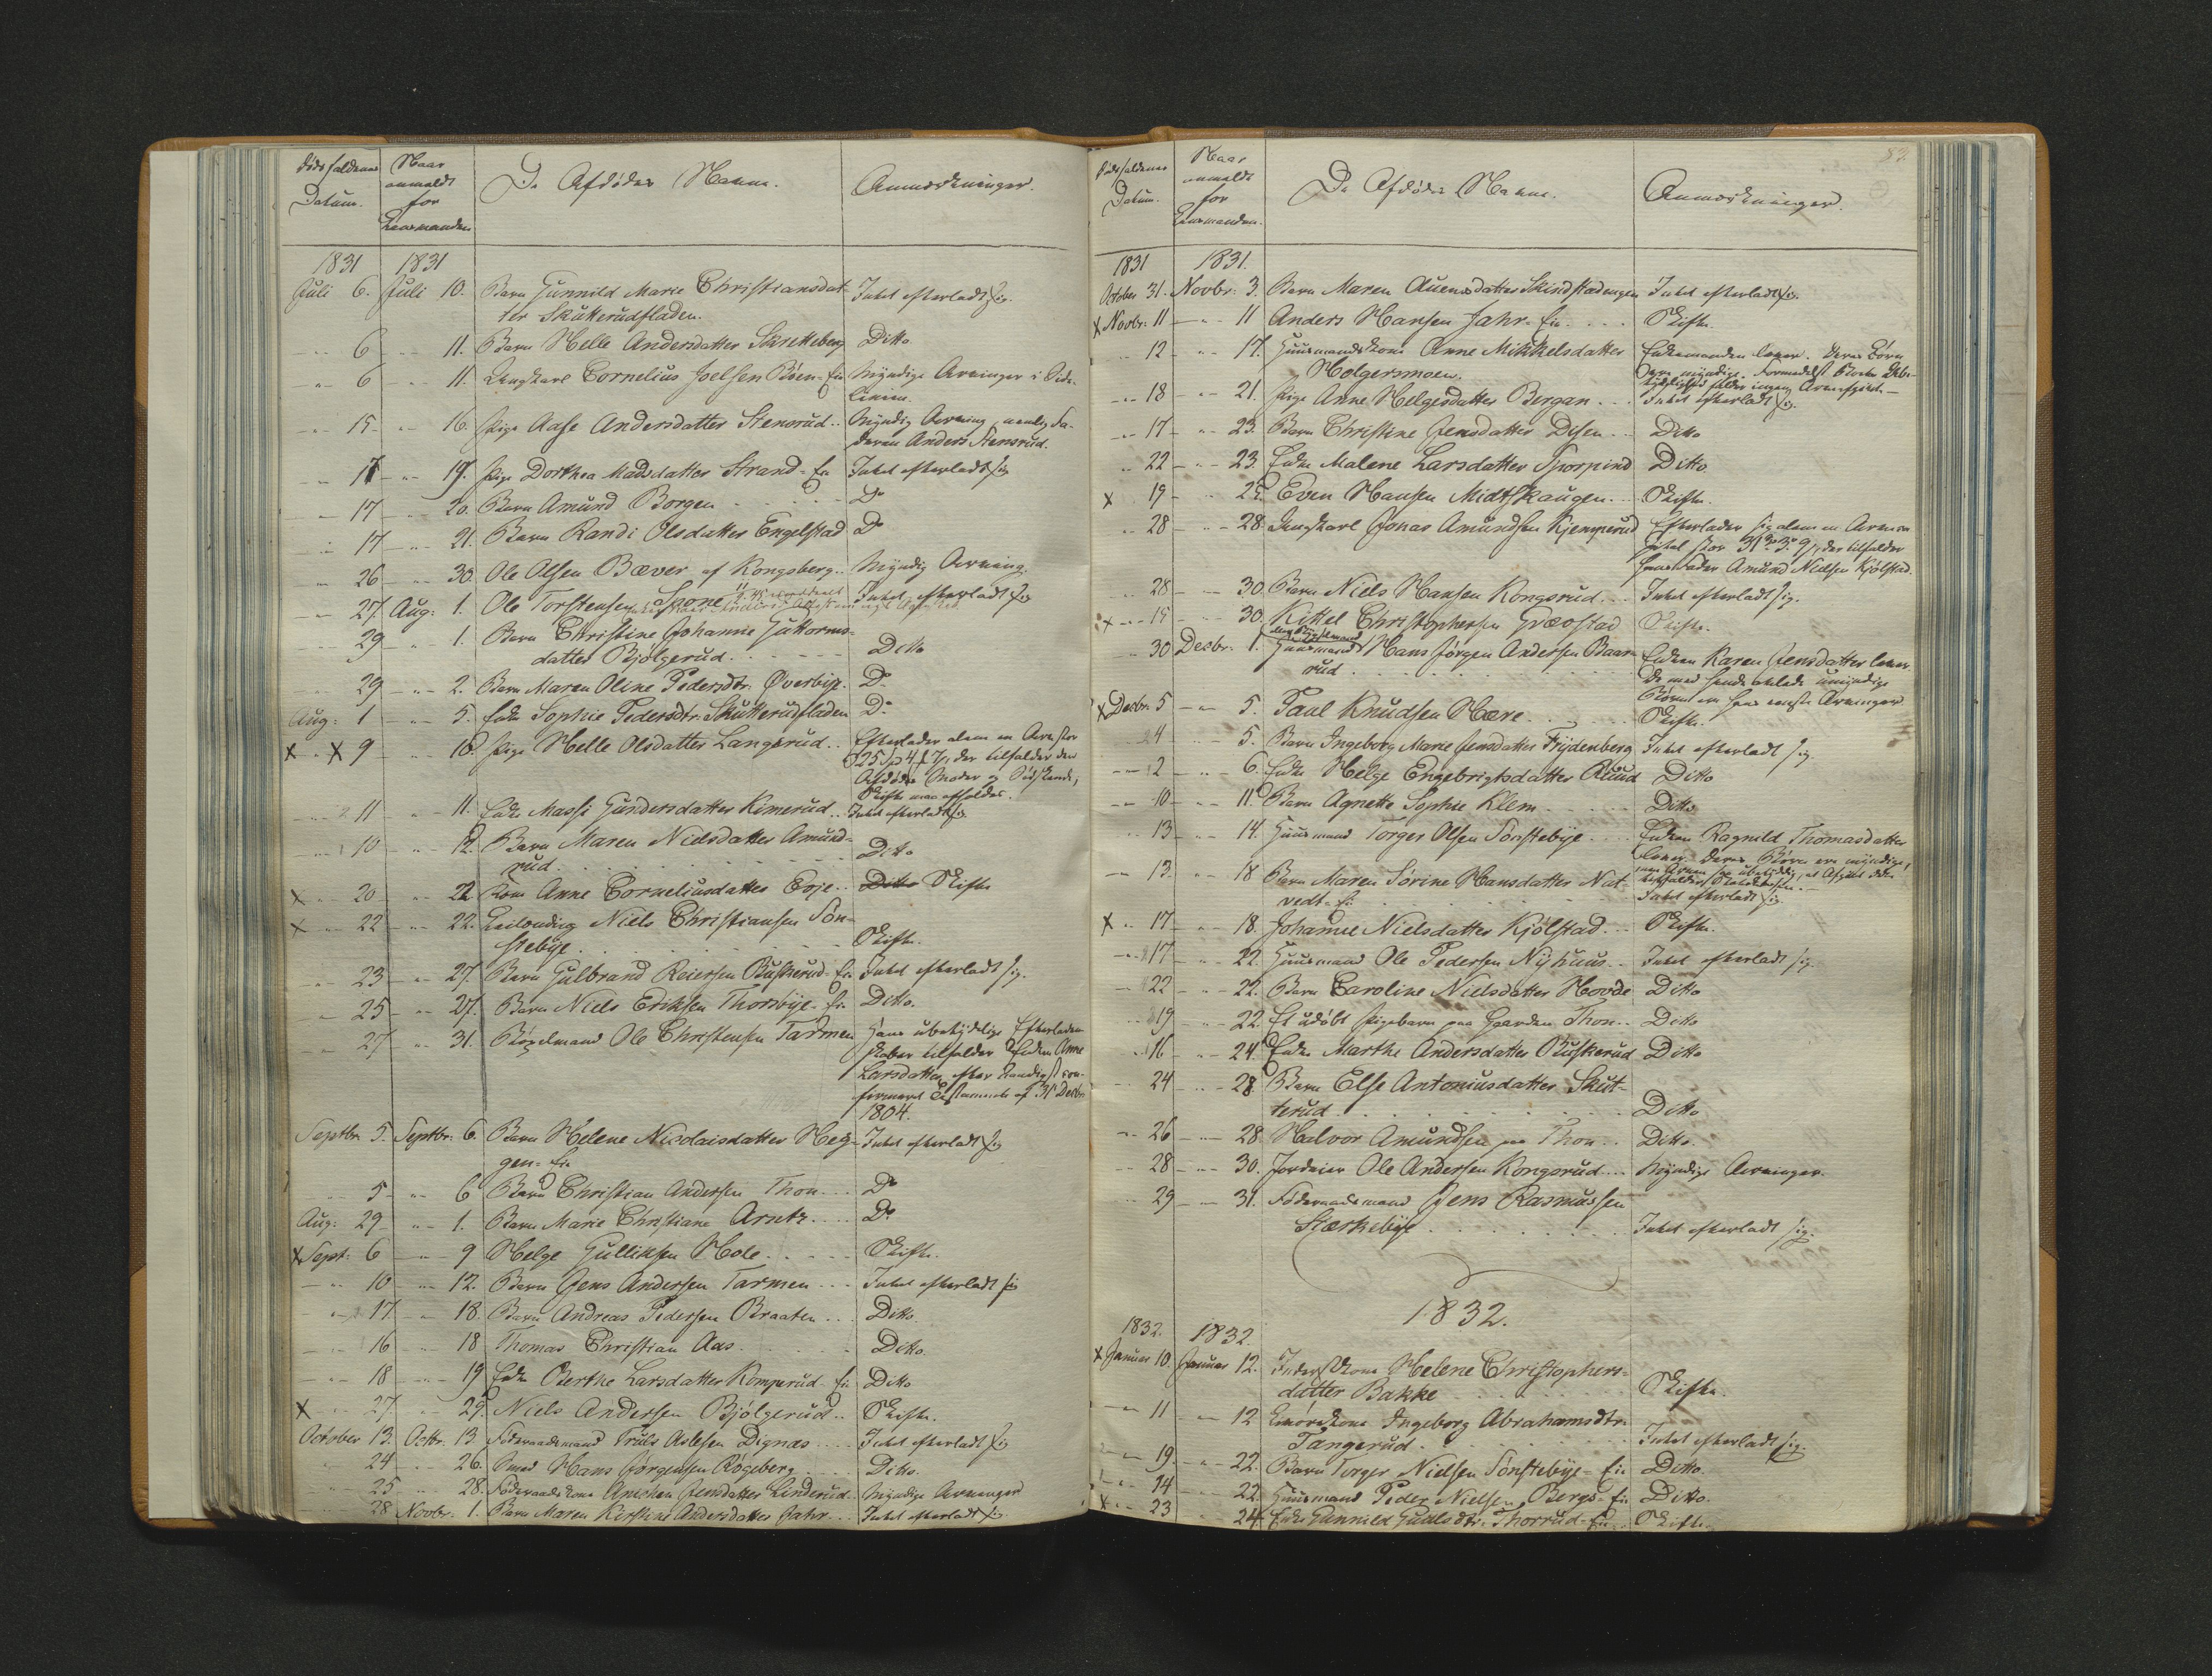 Dødsfaldenes Datum.
Naar anmeldt for Lensmanden
De Afdødes Navne.
Anmærkninger.
1831 1831
Juli 6. Juli 10. Barn Gunnild Marie Christiansdat- Intet efterladt sig.
ter Skutterudfladen.
" 6 " 11. Barn Helle Andersdatter Skretteberg Ditto
" 6 " 11. Ungkarl Cornelius Joelsen Bøen-Eie Myndige Arvinger i Side-
linien.
" 15 " 16. Pige Aase Andersdatter Stensrud.. Myndig Arving, nemlig Fa-
deren Anders Stensrud.
" 17 " 19. Pige Dorthea Madsdatter Strand-Eie Intet efterladt sig
" 17 " 20. Barn Amund Borgen Do
" 17 " 21. Barn Randi Olsdatter Engelstad Do
" 26 " 30. Ole Olsen Bæver af Kongsberg.. Myndig Arving.
" 27 Aug: 1. Ole Torstensen Skone Intet efterladt sig
" 29 " 1. Barn Christine Johanne Guttorms-
datter Bjölgerud. Ditto
" 29 " 2. Barn Maren Oline Pedersdtr. Øverbye. Do
Aug: 1 " 5. Enke Sophie Pedersdtr. Skutterudfladen Do
X " X 9 " 10. Pige Helle Olsdatter Langerud.. Efterlader alene en Arv stor
25 Sp 4 7, der tilfalder den
Afdødes Moder og Sødskende,
Skifte maa afholdes.
" 11 " 11. Enke Massi Gundersdatter Kimerud.. Intet efterladt sig
" 10 " 12. Barn Maren Nielsdatter Amund-
rud. Ditto
X " 20 " 22 Kone Anne Corneliusdatter Evje.. Ditto Skifte
X " 22 " 22. Leilending Niels Christiansen Søn-
stebye. Skifte.
" 23 " 27. Barn Gulbrand Reiersen Buskerud-Eie Intet efterladt sig.
" 25 " 27. Barn Niels Eriksen Thorsbye-Eie Ditto.
" 27 " 31. Bøxelmand Ole Christensen Tarmen Hans ubetydelige Efterladen-
skaber tilfalder Enken Anne
Larsdatter efter Kongeligst con-
firmeret Testamente af 31 Decbr
1804.
Septbr. 5. Septbr. 6. Barn Helene Nicolaisdatter Heg- Intet efterladt sig
gen-Eie
" 5 " 6 Barn Christian Andersen Thon... Do
Aug: 29 " 1. Barn Marie Christiane Arntz.... Do
X Sept: 6 " 9 Helge Gulliksen Hole. Skifte.
" 10 " 12. Barn Jens Andersen Tarmen... Intet efterladt sig
" 17 " 18. Barn Andreas Pedersen Braaten... Ditto
" 16 " 18 Thomas Christian Aas. Ditto.
" 18 " 19 Enke Berthe Larsdatter Komperud-Eie Ditto
X " 27 " 29 Niels Andersen Bjölgerud.. Skifte.
October 13. Octbr. 13 Føderaadsmand Truls Aslesen Dignæs.... Intet efterladt sig
" 24 " 26. Smed Hans Jørgensen Røgeberg Ditto.
" 25 " 28. Føderaadskone Anichen Jensdatter Linderud. Myndige Arvinger
" 28 Novbr. 1. Barn Maren Kirstine Andersdatter Jahr... Intet efterladt sig.
83.
Dødsfaldenes Datum.
Naar anmeldt for Lensmanden.
De Afdødes Navne.
Anmærkninger.
1831 1831.
October 31. Novbr. 3. Barn Maren Auensdatter Skindstadengen Intet efterladt sig.
X Novbr: 11 " 11 Anders Hansen Jahr-Eie.... Skifte.
" 12 " 17. Huusmandskone Anne Mikkelsdatter Enkemanden lever. Deres Børn
Holgersmoen. ere myndige. Formedelst Boets Ube-
tydelighed falder ingen Arveafgivt.
" 18 " 21. Pige Anne Helgesdatter Bergan... Intet efterladt sig.
" 17 " 23. Barn Christine Jensdatter Disen.. Ditto
" 22 " 23. Enke Malene Larsdatter Sporpind Ditto
X 19 " 25. Even Hansen Midtskaugen.. Skifte.
" 28 " 28. Ungkarl Jonas Amundsen Kjemperud Efterlader sig alene en Arvecapital
stor 31 3 9, der tilfalder
hans Fader Amund Nielsen Kjölstad.
" 28 " 30. Barn Niels Hansen Kongsrud... Intet efterladt sig.
X " 15 " 30. Kittel Christophersen Græsstad Skifte.
" 30 Decbr. 1. Huusmand Hans Jørgen Andersen Baase- Enken Karen Jensdatter lever
rud. De med hende avlede umyndige
Børn ere hans eneste Arvinger
X Decbr. 5 " 5. Paul Knudsen Hære Skifte.
" 4 " 5. Barn Ingeborg Marie Jensdatter Frydenberg Intet efterladt sig.
" 2 " 6. Enke Helge Engebrigtsdatter Ruud Ditto
" 10 " 11. Barn Agnette Sophie Klem Ditto
" 13 " 14. Huusmand Torger Olsen Sønstebye Enken Ragnild Thomasdatter
lever. Deres Børn ere myndige,
" 13. " 18 Barn Maren Sørine Hansdatter Nat-
vedt-Eie Intet efterladt sig.
X " 17 " 18. Johanne Nielsdatter Kjölstad... Skifte.
" 17 " 22. Huusmand Ole Pedersen Nyhuus.. Intet efterladt sig.
" 22 " 22. Barn Caroline Nielsdatter Hovde Ditto
" 19 " 22. Et udøbt Pigebarn paa Gaarden Thon.. Ditto
" 16 " 24. Enke Marthe Andersdatter Buskerud Ditto
" 24 " 28 Barn Else Antoniusdatter Skut-
terud. Ditto
" 26 " 28 Halvor Amundsen paa Thon.. Ditto.
" 28 " 30. Jordeier Ole Andersen Kongsrud.... Myndige Arvinger.
" 29 " 31. Føderaadsmand Jens Rasmussen
Stærkebye Intet efterladt sig.
1832.
1832. 1832.
X Januar 10. Januar 12. Inderstkone Helene Christophers-
datter Bakke Skifte.
" 11 " 12 Ingeborg Abrahamsdtr.
Tangerud. Intet efterladt sig.
" 19 " 22. Barn Torger Nielsen Sønstebye-Eie Ditto.
" 14 " 22 Huusmand Peder Nielsen Bergs-Eie Ditto.
X " 23 " 24 Enke Gunnild Thorrud-Eie Skifte.